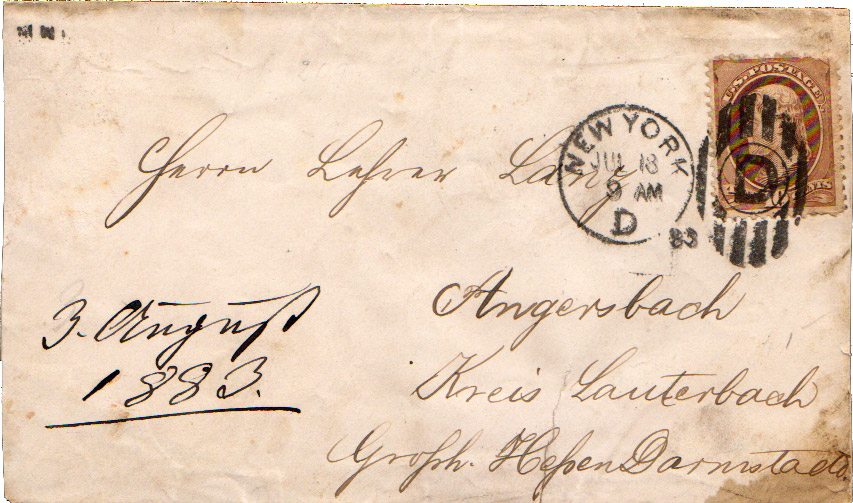 U.S. POSTAGE
NEW YORK
JUL 18
9 AM
D
83
D
Herrn Lehrer Lanz
Angersbach
Kreis Lauterbach
Großh. Heßen Darmstadt.
3. August
1883.